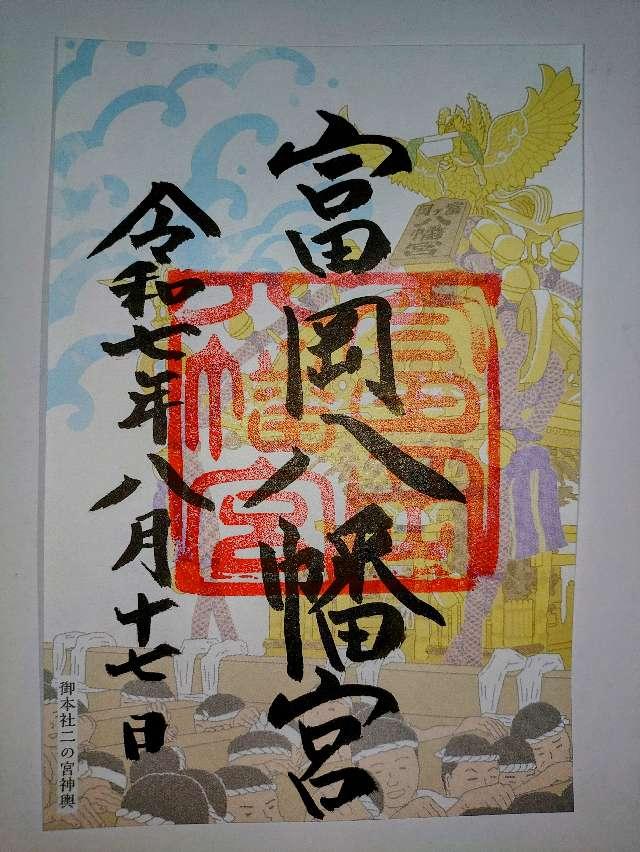 富岡八幡宮
令和七年八月十七日
富岡八幡宮
御本社二の宮神輿